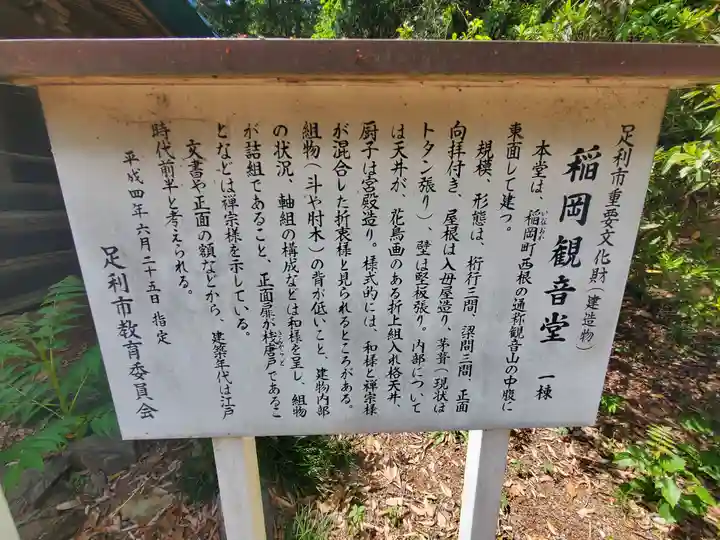 足利市重要文化財(建造物)
稲岡観音堂 一棟
本堂は、稲岡町西根の通称観音山の中腹に
いなおか
東面して建つ。
規模、形態は、桁行三間、梁間三間、正面
向拝付き、屋根は入母屋造り、茅葺(現状は
トタン張り)、壁は竪板張り。内部について
は天井が、花鳥画のある折上組入れ格天井、
厨子は宮殿造り。様式的には、和様と禅宗様
が混合した折衷様と見られるところがある。
組物(斗や肘木)の背が低いこと、建物内部
の状況、軸組の構成などは和様を呈し、組物
が詰組であること、正面扉が桟唐戸であるこ
となどは禅宗様を示している。
文書や正面の額などから、建築年代は江戸
時代前半と考えられる。
平成四年六月二十五日 指定
足利市教育委員会